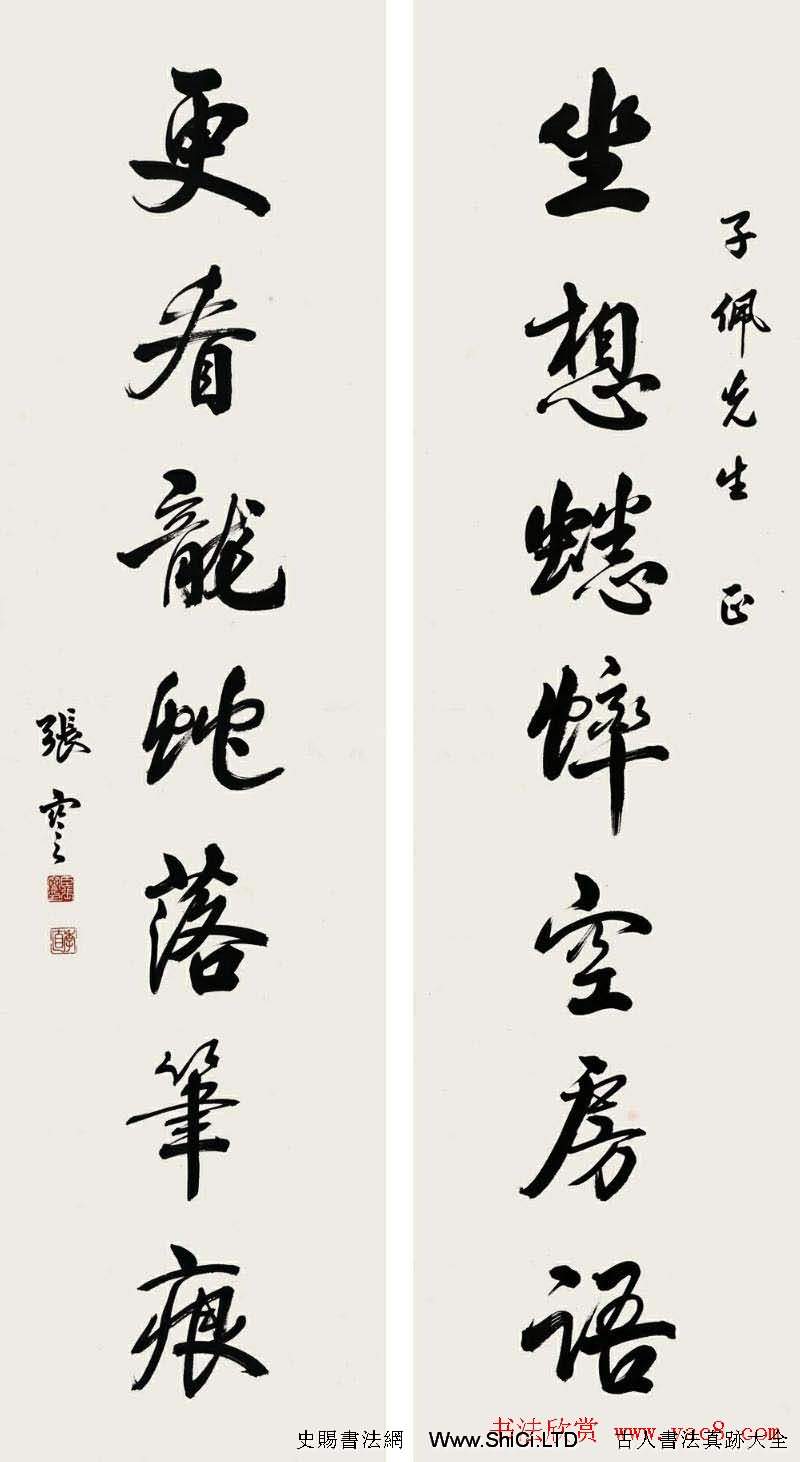 子佩先生 正
坐想蟋蟀空房語
更看龍蛇落筆痕
張謇
季直
书法欣赏 www.yac8.com
史賜書法網 Www.ShiCi.LTD 古人書法真跡大全